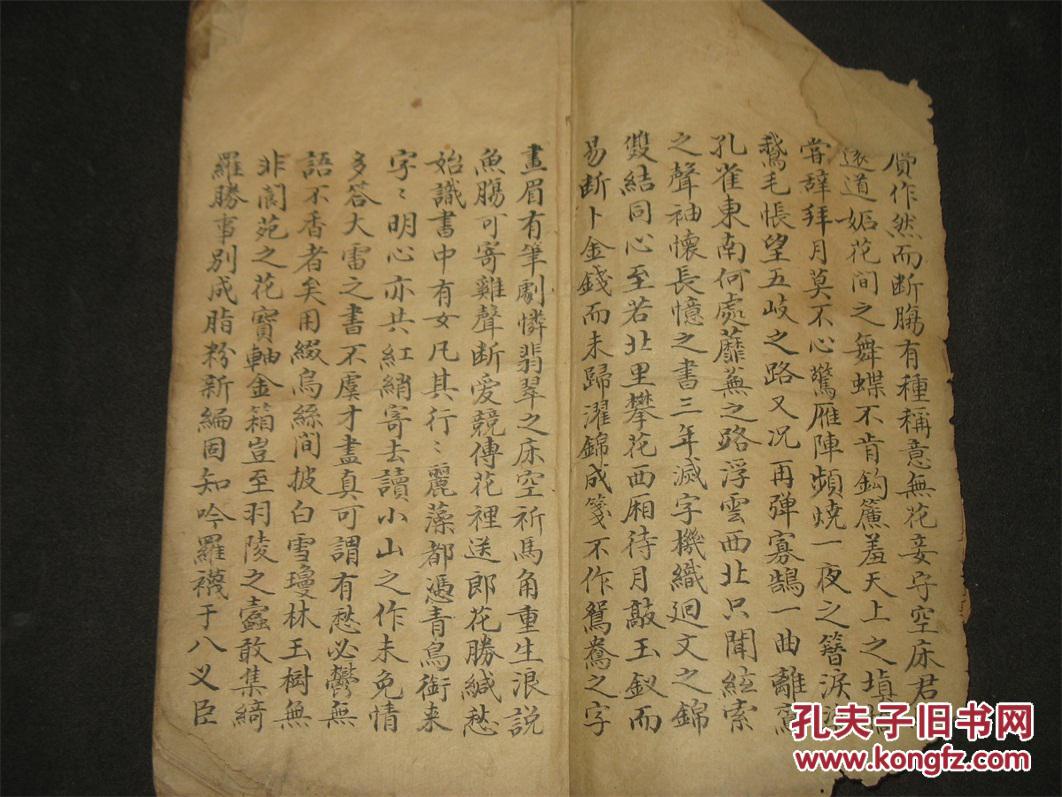 贋作然而断腸有種稱意無花妾守空床君
遠道妬花間之舞蝶不肯鈎簾羞天上之填
嘗辞拜月莫不心驚雁陣頻燒一夜之簪淚
鵝毛悵望五岐之路又况再弹寡鵠一曲離鸞
孔雀東南何處蘼蕪之路浮雲西北只聞絃索
之聲袖懷長憶之書三年滅字機織迴文之錦
雙結同心至若北里攀花西厢待月敲玉釵而
易断卜金錢而未歸濯錦成箋不作鴛鴦之字
畫眉有筆劇憐翡翠之床空祈馬角重生浪説
魚腸可寄雞聲断愛競傳花裡送郎花勝緘愁
始識書中有女凡其行〻麗藻都憑青鳥銜来
字〻明心亦共紅綃寄去讀小山之作未免情
多答大雷之書不虞才盡真可謂有愁必鬱無
語不香者矣用綴烏絲間披白雪瓊林玉樹無
非閬苑之花寶軸金箱豈至羽陵之蠹敢集綺
羅勝事别成脂粉新編固知吟羅襪于八乂臣
孔夫子旧书网
www.kongfz.com